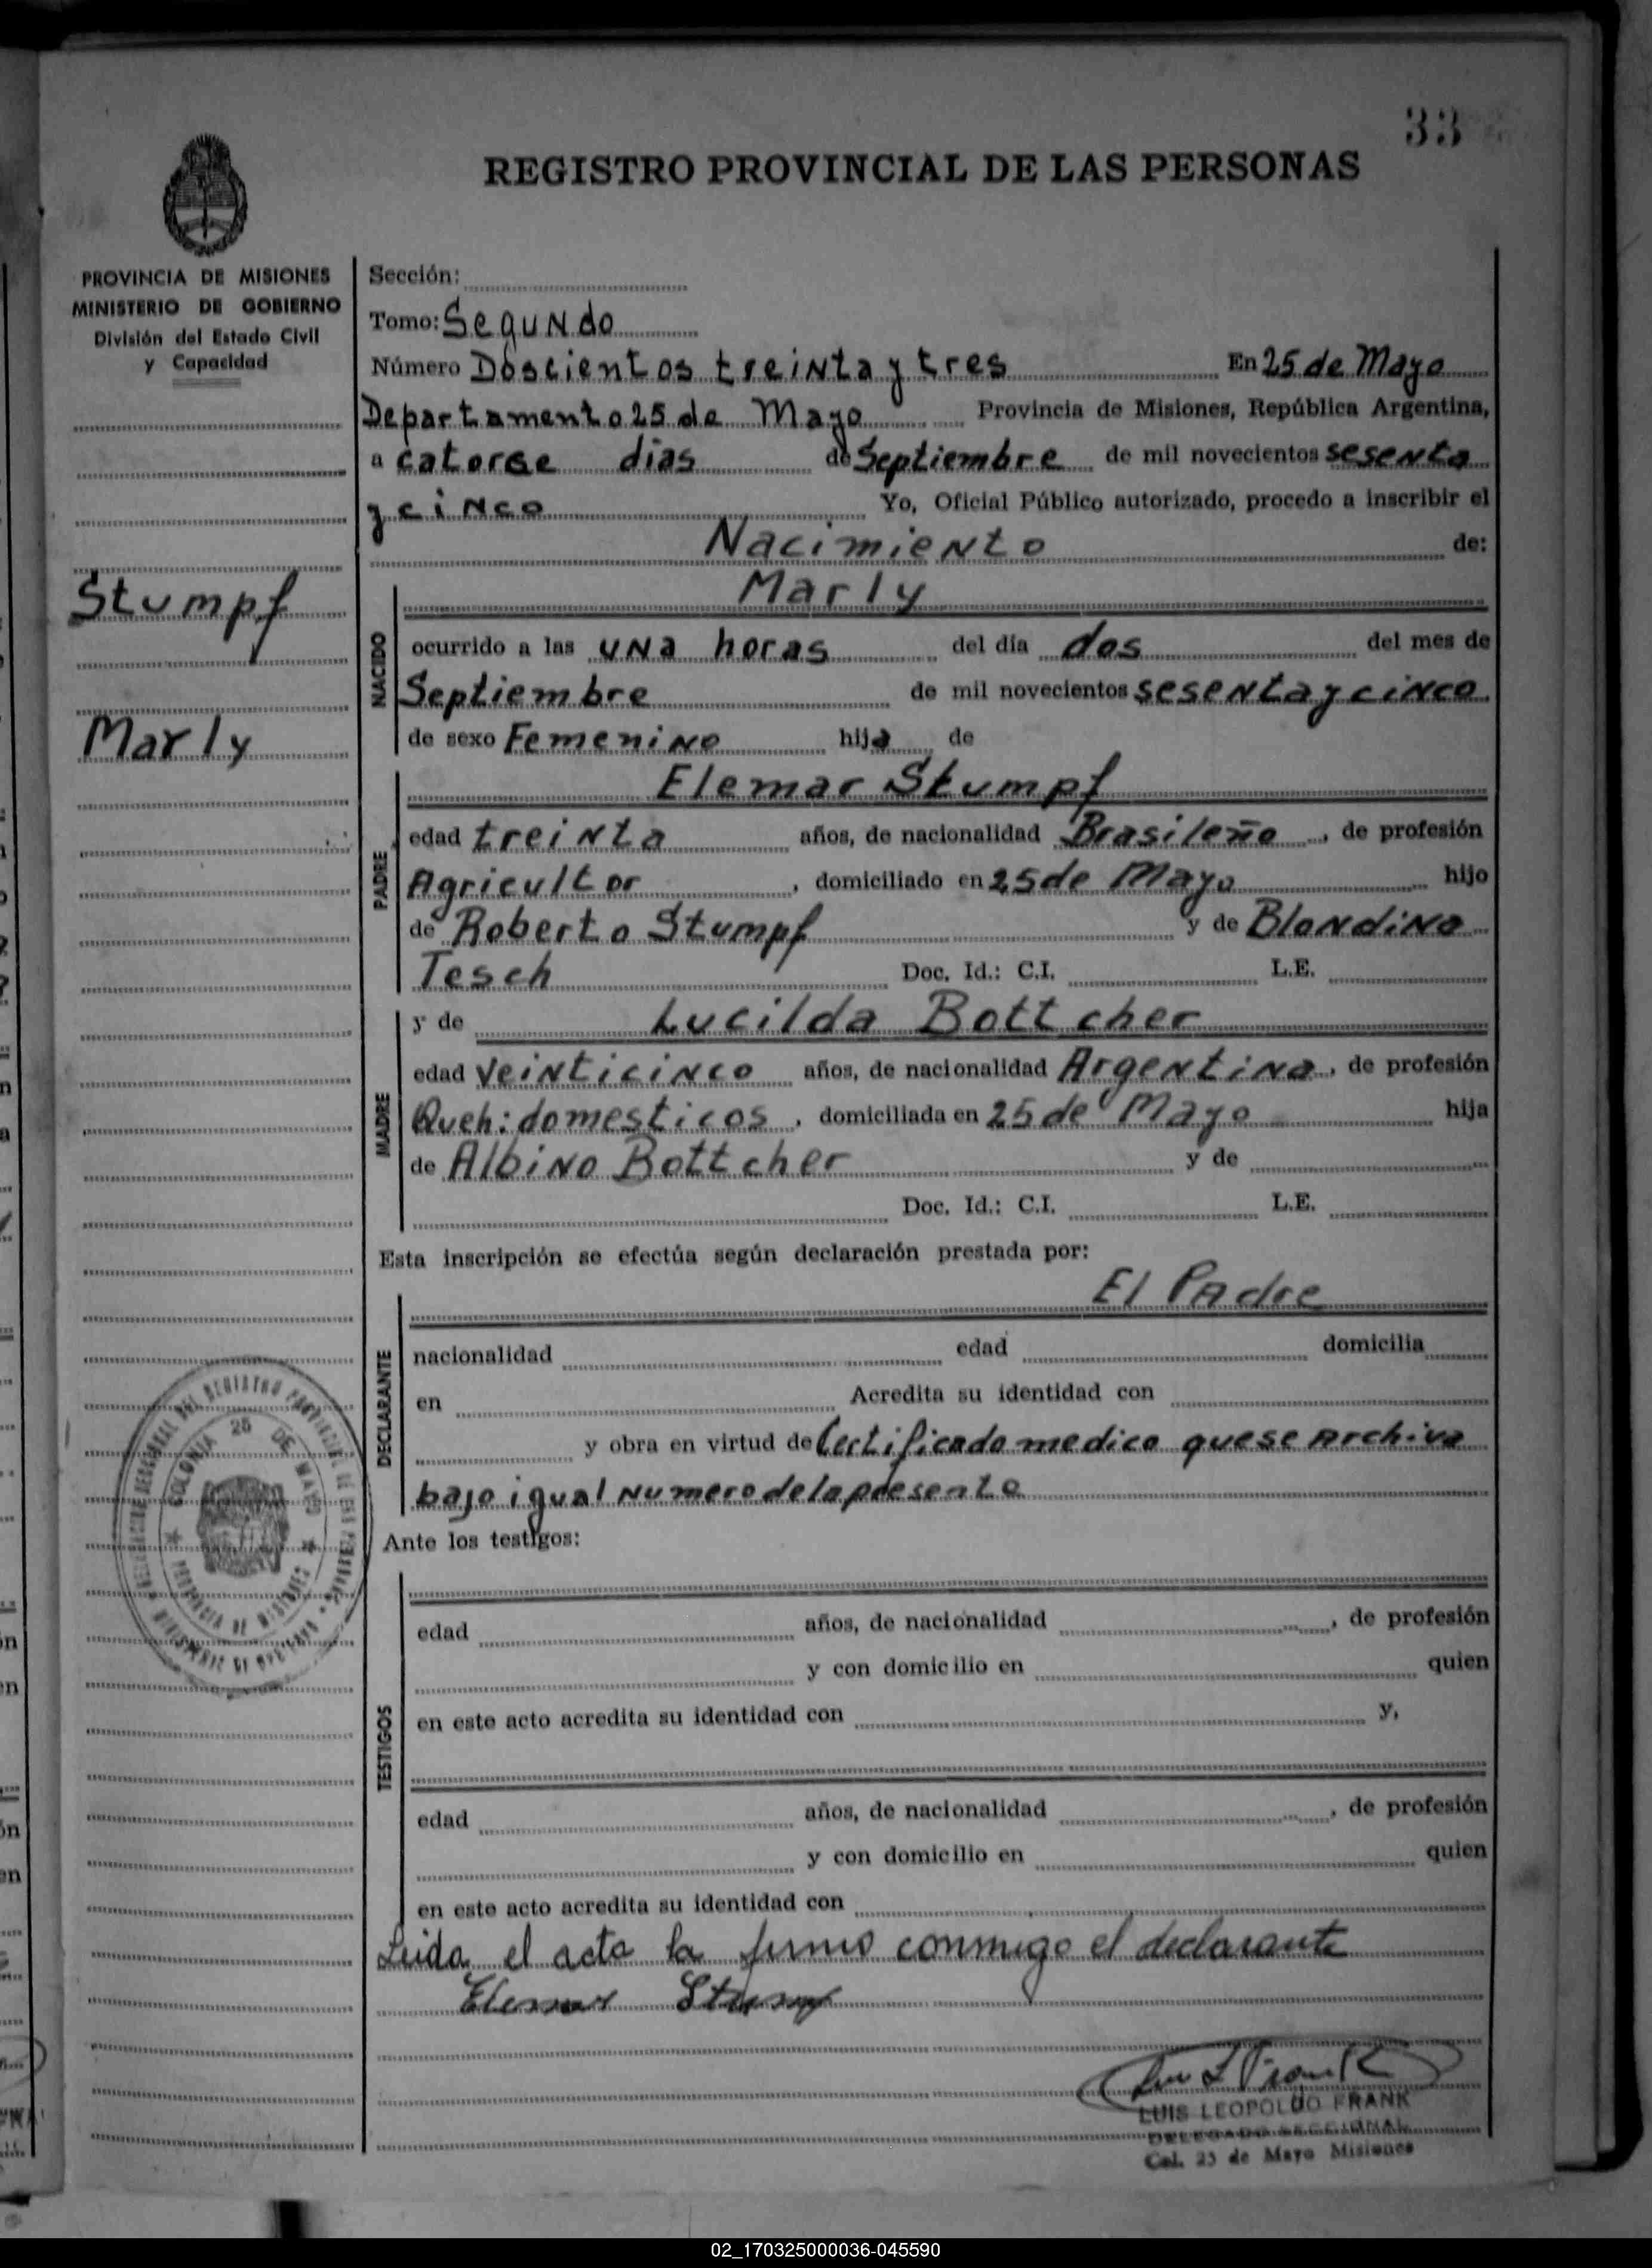 33
REGISTRO PROVINCIAL DE LAS PERSONAS
PROVINCIA DE MISIONES
MINISTERIO DE GOBIERNO
División del Estado Civil
y Capacidad
Stumpf
Marly
COLONIA 25 DE MAYO
PROVINCIA DE MISIONES
Sección:
Tomo: Segundo
Número Doscientos treinta y tres En 25 de Mayo
Departamento 25 de Mayo Provincia de Misiones, República Argentina,
a catorse dias de Septiembre de mil novecientos sesenta
y cinco Yo, Oficial Público autorizado, procedo a inscribir el
Nacimiento de:
NACIDO
Marly
ocurrido a las una horas del día dos del mes de
Septiembre de mil novecientos sesenta y cinco
de sexo Femenino hija de
PADRE
Elemar Stumpf
edad treinta años, de nacionalidad Brasileño, de profesión
Agricultor, domiciliado en 25 de Mayo hijo
de Roberto Stumpf y de Blondina
Tesch Doc. Id.: C.I. L.E.
MADRE
y de Lucilda Bottcher
edad veinticinco años, de nacionalidad Argentina, de profesión
Queh: domesticos, domiciliada en 25 de Mayo hija
de Albino Bottcher y de
Doc. Id.: C.I. L.E.
Esta inscripción se efectúa según declaración prestada por:
DECLARANTE
El Padre
nacionalidad edad domicilia
en Acredita su identidad con
y obra en virtud de Certificado medico que se archiva
bajo igual numero de la presente
Ante los testigos:
TESTIGOS
edad años, de nacionalidad , de profesión
y con domicilio en quien
en este acto acredita su identidad con y,
edad años, de nacionalidad , de profesión
y con domicilio en quien
en este acto acredita su identidad con
Leida el acta la firma conmigo el declarante
Elemar Stumpf
LUIS LEOPOLDO FRANK
DELEGADO SECCIONAL
Col. 25 de Mayo Misiones
02_170325000036-045590